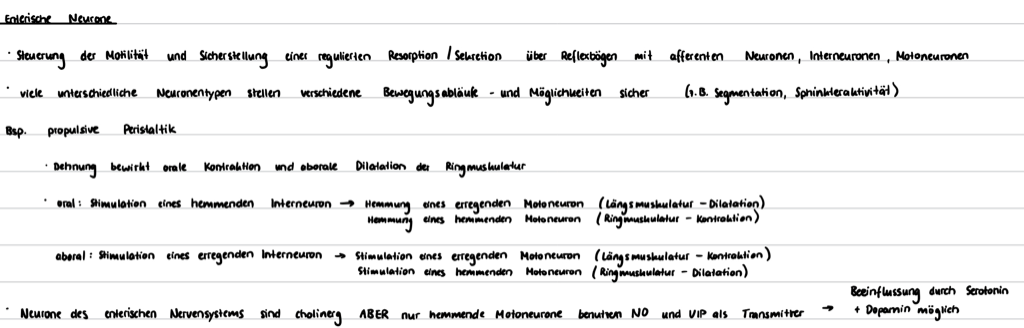 Enterische Neurone
· Steuerung der Motilität und Sicherstellung einer regulierten Resorption / Sekretion über Reflexbögen mit afferenten Neuronen, Interneuronen, Motoneuronen
· viele unterschiedliche Neuronentypen stellen verschiedene Bewegungsabläufe - und Möglichkeiten sicher (z.B. Segmentation, Sphinkteraktivität)
Bsp. propulsive Peristaltik
· Dehnung bewirkt orale Kontraktion und aborale Dilatation der Ringmuskulatur
· oral: Stimulation eines hemmenden Interneuron → Hemmung eines erregenden Motoneuron (Längsmuskulatur - Dilatation)
Hemmung eines hemmenden Motoneuron (Ringmuskulatur - Kontraktion)
aboral: Stimulation eines erregenden Interneuron → Stimulation eines erregenden Motoneuron (Längsmuskulatur - Kontraktion)
Stimulation eines hemmenden Motoneuron (Ringmuskulatur - Dilatation)
· Neurone des enterischen Nervensystems sind cholinerg ABER nur hemmende Motoneurone benutzen NO und VIP als Transmitter → Beeinflussung durch Serotonin
+ Dopamin möglich